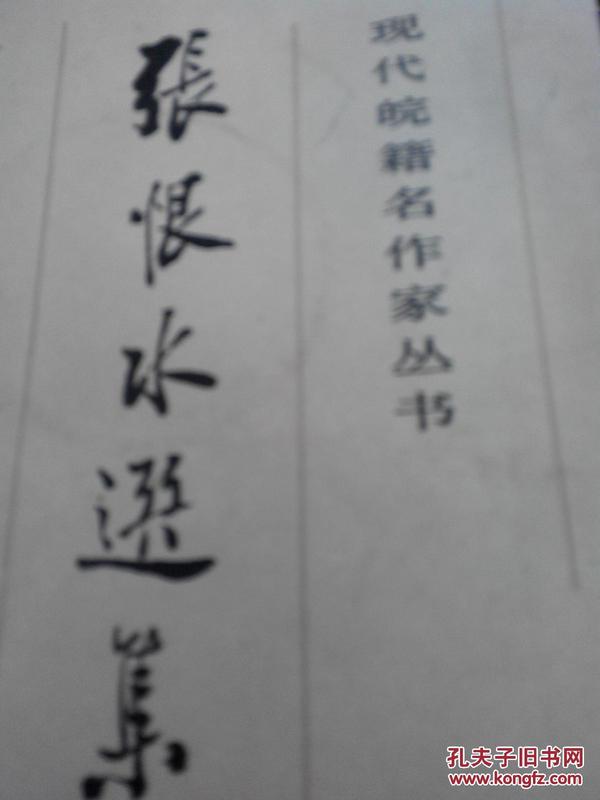 现代皖籍名作家丛书
張恨水選集
孔夫子旧书网
www.kongfz.com